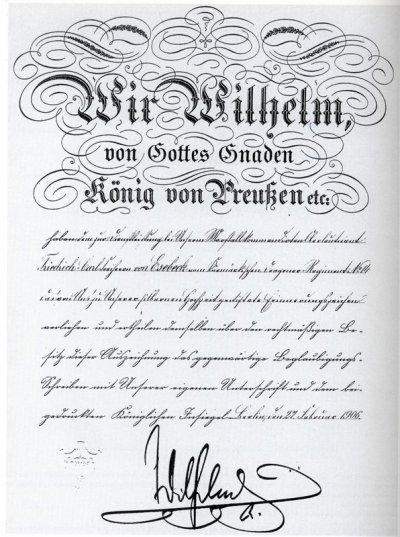 Wir Wilhelm,
von Gottes Gnaden
König von Preußen etc:
haben dem zur Dienstleistung bei Unserem Marstall kommandirten Oberleutnant
Friedrich-Carl Freiherrn von Esebeck vom Kurmärkischen Dragoner Regiment No. 14
das von Uns zu Unserer silbernen Hochzeit gestiftete Erinnerungszeichen
verliehen und ertheilen demselben über den rechtmäßigen Be-
sitz dieser Auszeichnung das gegenwärtige Beglaubigungs-
Schreiben mit Unserer eigenen Unterschrift und dem bei-
gedruckten Königlichen Insiegel. Berlin, den 27. Februar 1906.
Wilhelm
R.